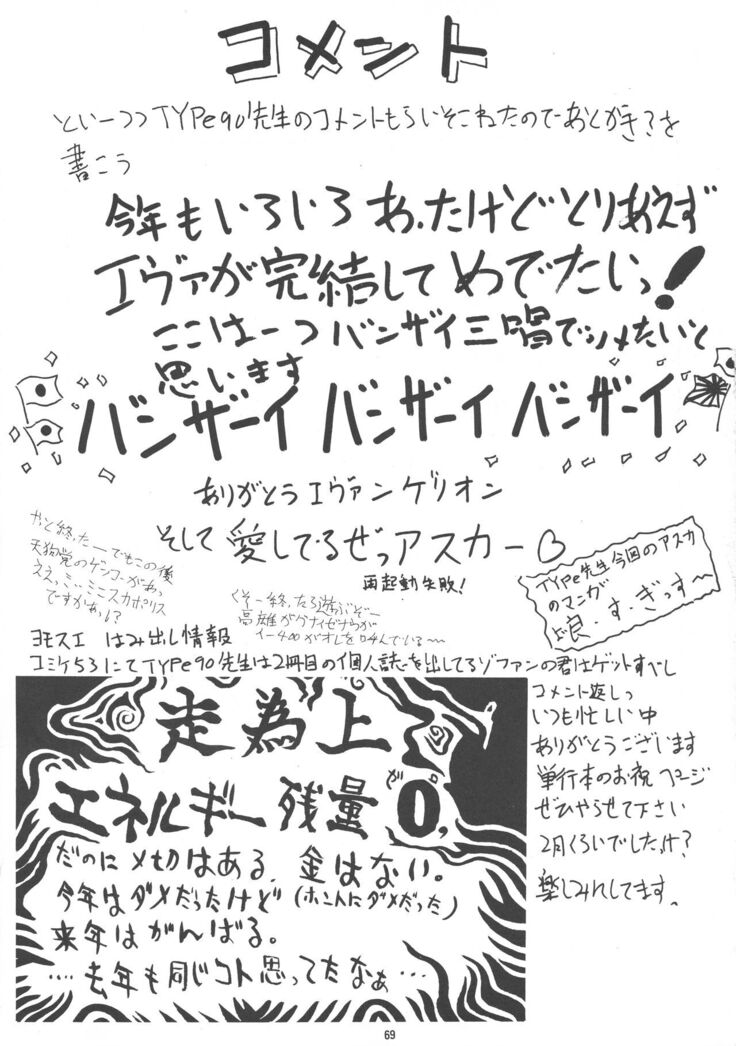 コメント
といーつつTYPe90先生のコメントもらいそこねたのであとがき?を
書こう
今年もいろいろあったけどとりあえず
エヴァが完結してめでたいっ!
ここは一つバンザイ三唱でシメたいと
思います
バンザーイ バンザーイ バンザーイ
ありがとうエヴァンゲリオン
そして愛してるぜっアスカー♡
再起動失敗!
やと終ったーでもこの後
天狗党のゲンコーがあっ
ええ、ミ、ミニスカポリス
ですかあっ!?
くそー終ったら遊ぶぞー
高雄が
イー400がオレを呼んでいる〜
TYPe先生今回のアスカ
のマンガ
良・す・ぎっす〜
ヨモスエ はみ出し情報
コミケ53にてTYPe90先生は2冊目の個人誌を出してるゾファンの君はゲットすべし
走為上
エネルギー残量が0,
だのに〆切はある、金はない。
今年はダメだったけど(ホントにダメだった)
来年はがんばる。
‥‥去年も同じコト思ってたなぁ…
コメント返しっ
いつも忙しい中
ありがとうございます
単行本のお祝ページ
ぜひやらせて下さい
2月くらいでしたっけ?
楽しみにしてます。
69